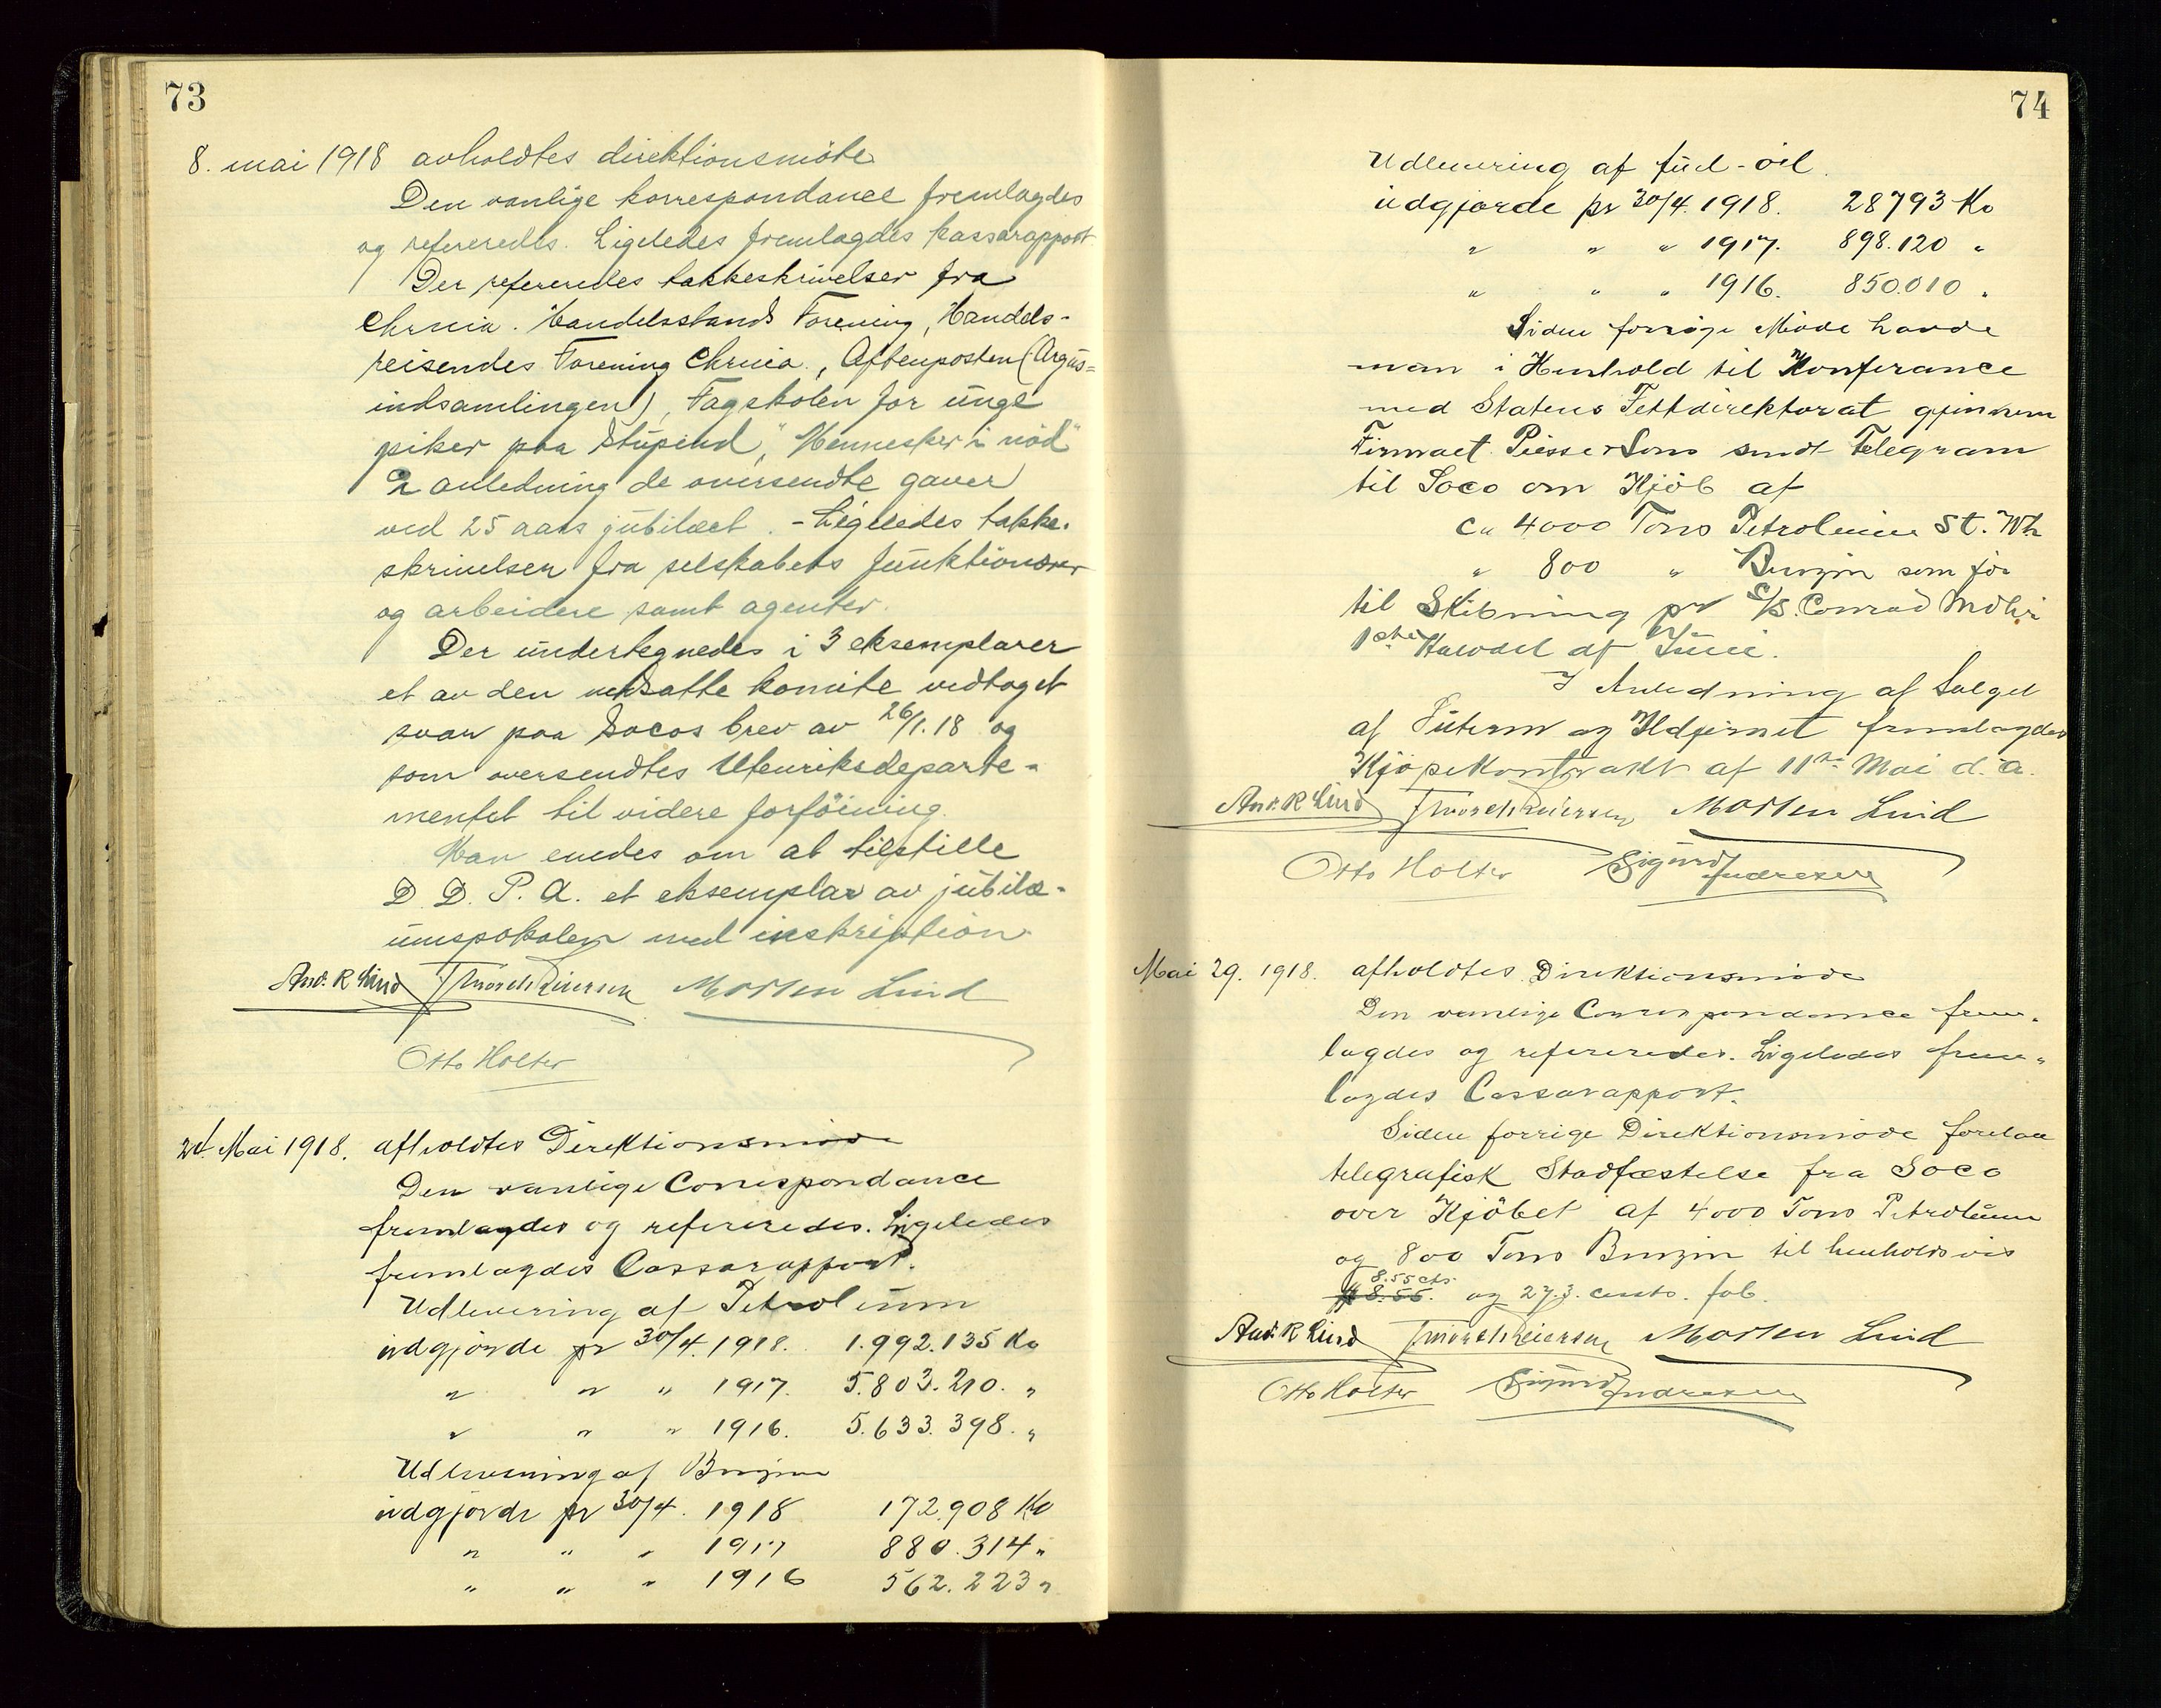 73
8. mai 1918 avholdtes direktionsmöte
Den vanlige korrespondance fremlagdes
og refereredes. Ligeledes fremlagdes kassarapport
Der refereredes takkeskrivelser fra
Chrnia. Handelsstands Forening, Handels-
reisendes Forening Chrnia., Aftenposten (Argus=
indsamlingen), Fagskolen for unge
piker paa Stupend, "Mennesker i nöd"
I anledning de oversendte gaver
ved 25 aars jubilæet. - Ligeledes takke-
skrivelser fra selskabets funktionærer
og arbeidere samt agenter.
Der undertegnedes i 3 eksemplarer
et av den nedsatte komite vedtaget
svar paa Socos brev av 26/1.18 og
som oversendtes Utenriksdeparte-
mentet til videre forföining.
Man enedes om at tilstille
D. D. P. A. et eksemplar av jubilæ-
umspokalen med inskription
And. R Lind Thorsch Reiersen Morten Lind
Otto Holter
24. Mai 1918. afholdtes Direktionsmöde
Den vanlige Correspondance
fremlagdes og refereredes. Ligeledes
fremlagdes Cassarapport.
Udlevering af Petroleum
udgjorde pr 30/4. 1918. 1.992.135 Ko
" " " 1917. 5.803.210. "
" " " 1916. 5.633.398. "
Udlevering af Benzin
udgjorde pr 30/4. 1918 172.908 Ko
" " " 1917 880.314 "
" " " 1916 562.223 "
74
Udlevering af fuel-oil.
udgjorde pr 30/4. 1918. 28793 Ko
" " " 1917. 898.120 "
" " " 1916. 850.010 "
Siden forrige Möde havde
man i Henhold til Konferance
med Statens Fettdirektorat gjennem
Firmaet Piesse & Sons sendt Telegram
til Soco om Kjöb af
ca 4000 Tons Petroleum St. Wh
" 800 " Benzin som för
til Skibning pr S/S. Conrad Mohr
1ste Halvdel af Juni.
I Anledning af Salget
af Suterm og Ildjernet fremlagdes
Kjöpekontrakt af 11te Mai d. a.
And. R Lind Thorsch Reiersen Morten Lind
Otto Holter Sigurd Andresen
Mai 29. 1918. afholdtes Direktionsmöde
Den vanlige Correspondance frem-
lagdes og refereredes. Ligeledes frem-
lagdes Cassarapport.
Siden forrige Direktionsmöde forelaa
telegrafisk Stadfæstelse fra Soco
over Kjöbet af 4000 Tons Petroleum
og 800 Tons Benzin til henholdsvis
8.55 cts.
$ 8.55. og 27.3. cents. fob.
And. R Lind Thorsch Reiersen Morten Lind
Otto Holter Sigurd Andresen